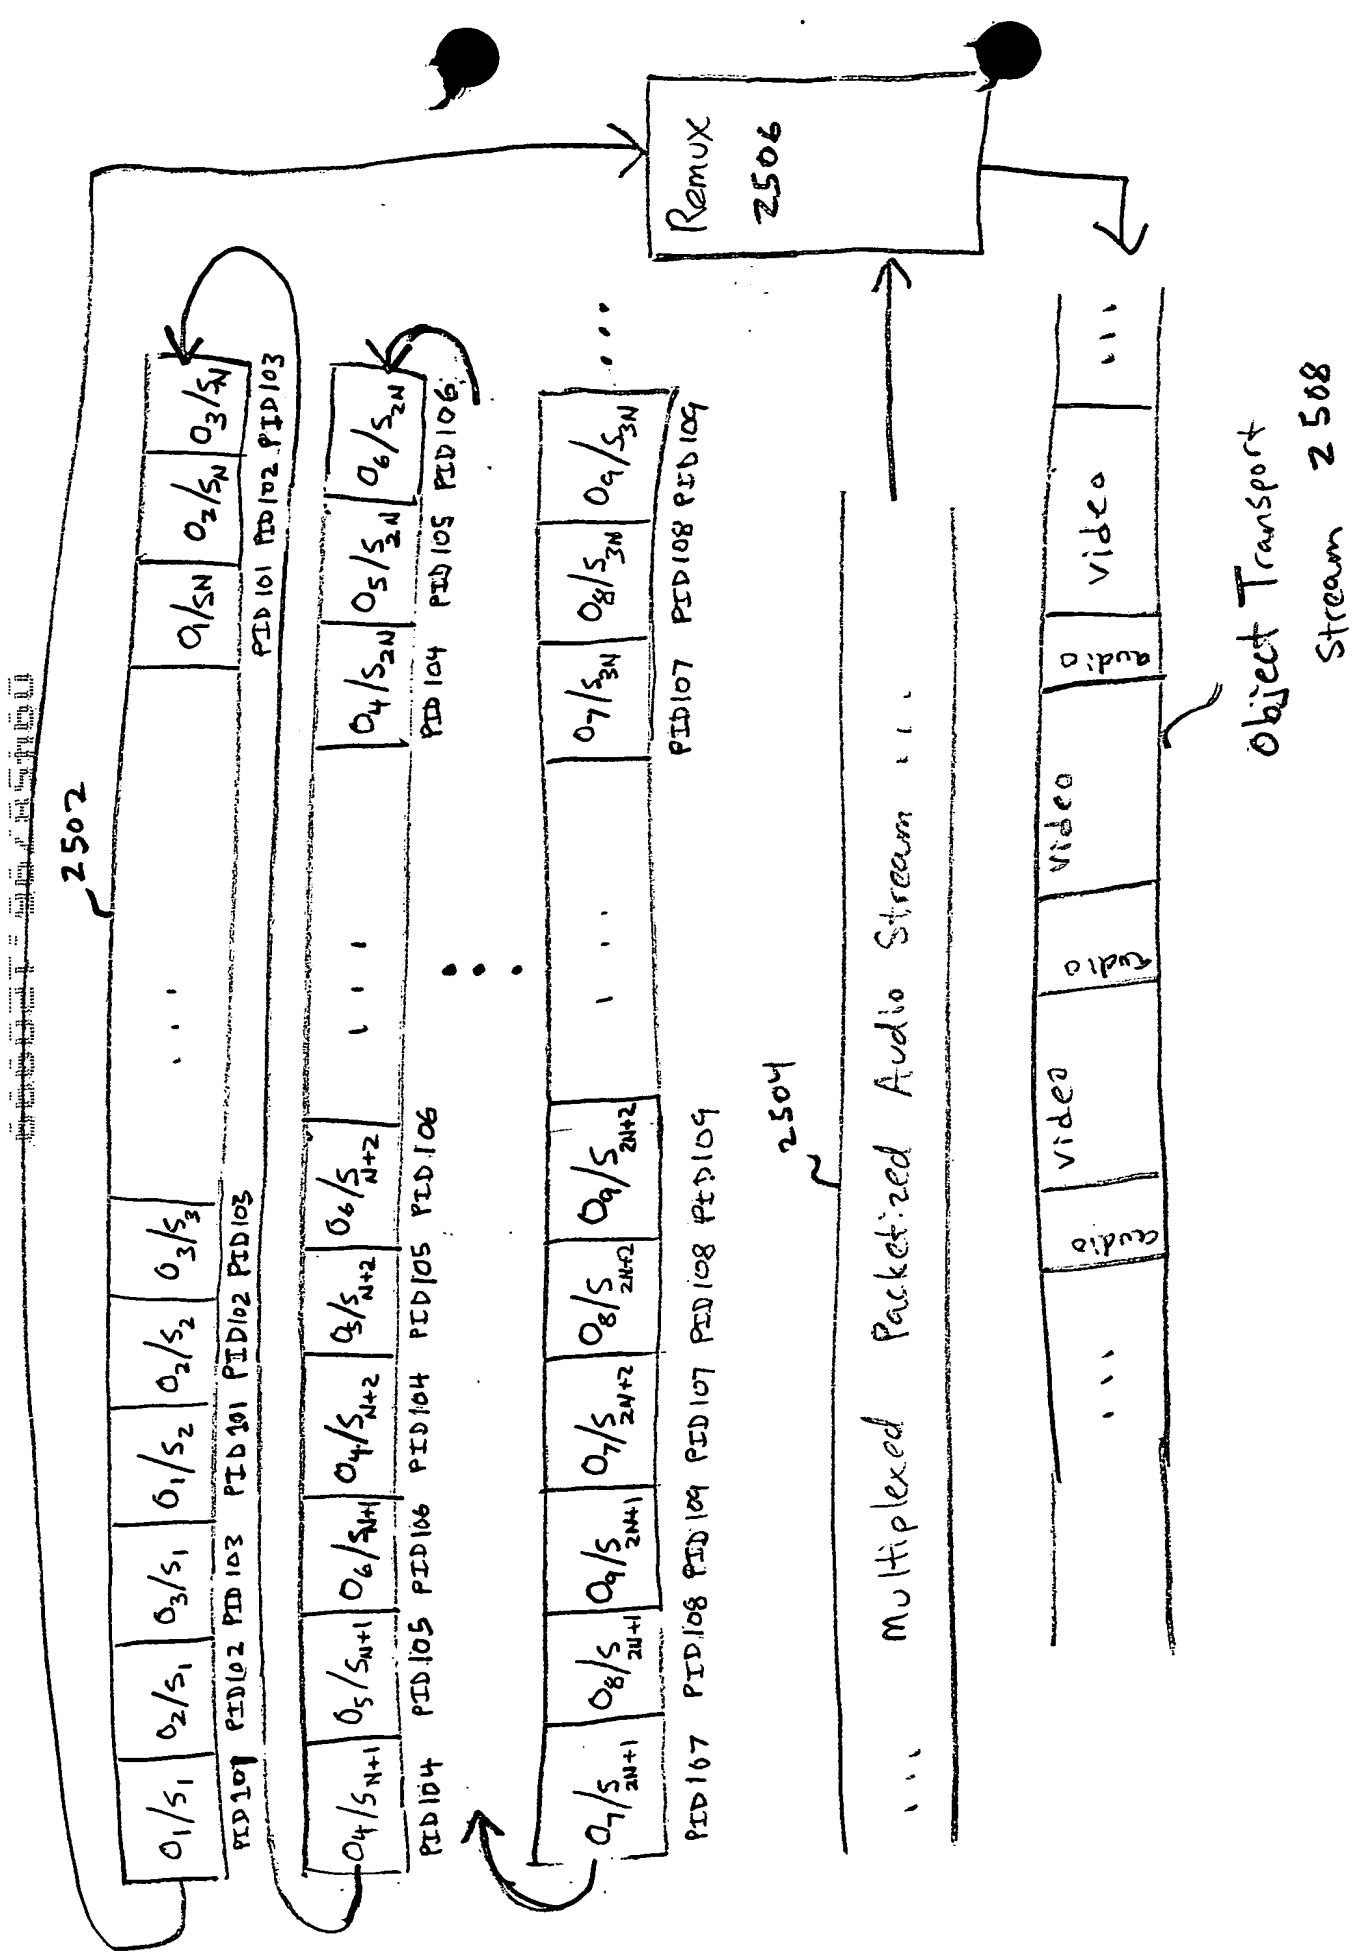 2502
O1/S1 O2/S1 O3/S1 O1/S2 O2/S2 O3/S3 ... O1/SN O2/SN O3/SN
PID101 PID102 PID103 PID101 PID102 PID103 PID101 PID102 PID103
O4/SN+1 O5/SN+1 O6/SN+1 O4/SN+2 O3/SN+2 O6/SN+2 ... O4/S2N O5/S2N O6/S2N
PID104 PID105 PID106 PID104 PID105 PID106 PID104 PID105 PID106
...
O7/S2N+1 O8/S2N+1 O9/S2N+1 O7/S2N+2 O8/S2N+2 O9/S2N+2 ... O7/S3N O8/S3N O9/S3N ...
PID107 PID108 PID109 PID107 PID108 PID109 PID107 PID108 PID109
Remux
2506
2504
... Multiplexed Packetized Audio Stream ...
... audio Video audio Video audio Video ...
Object Transport
Stream 2508